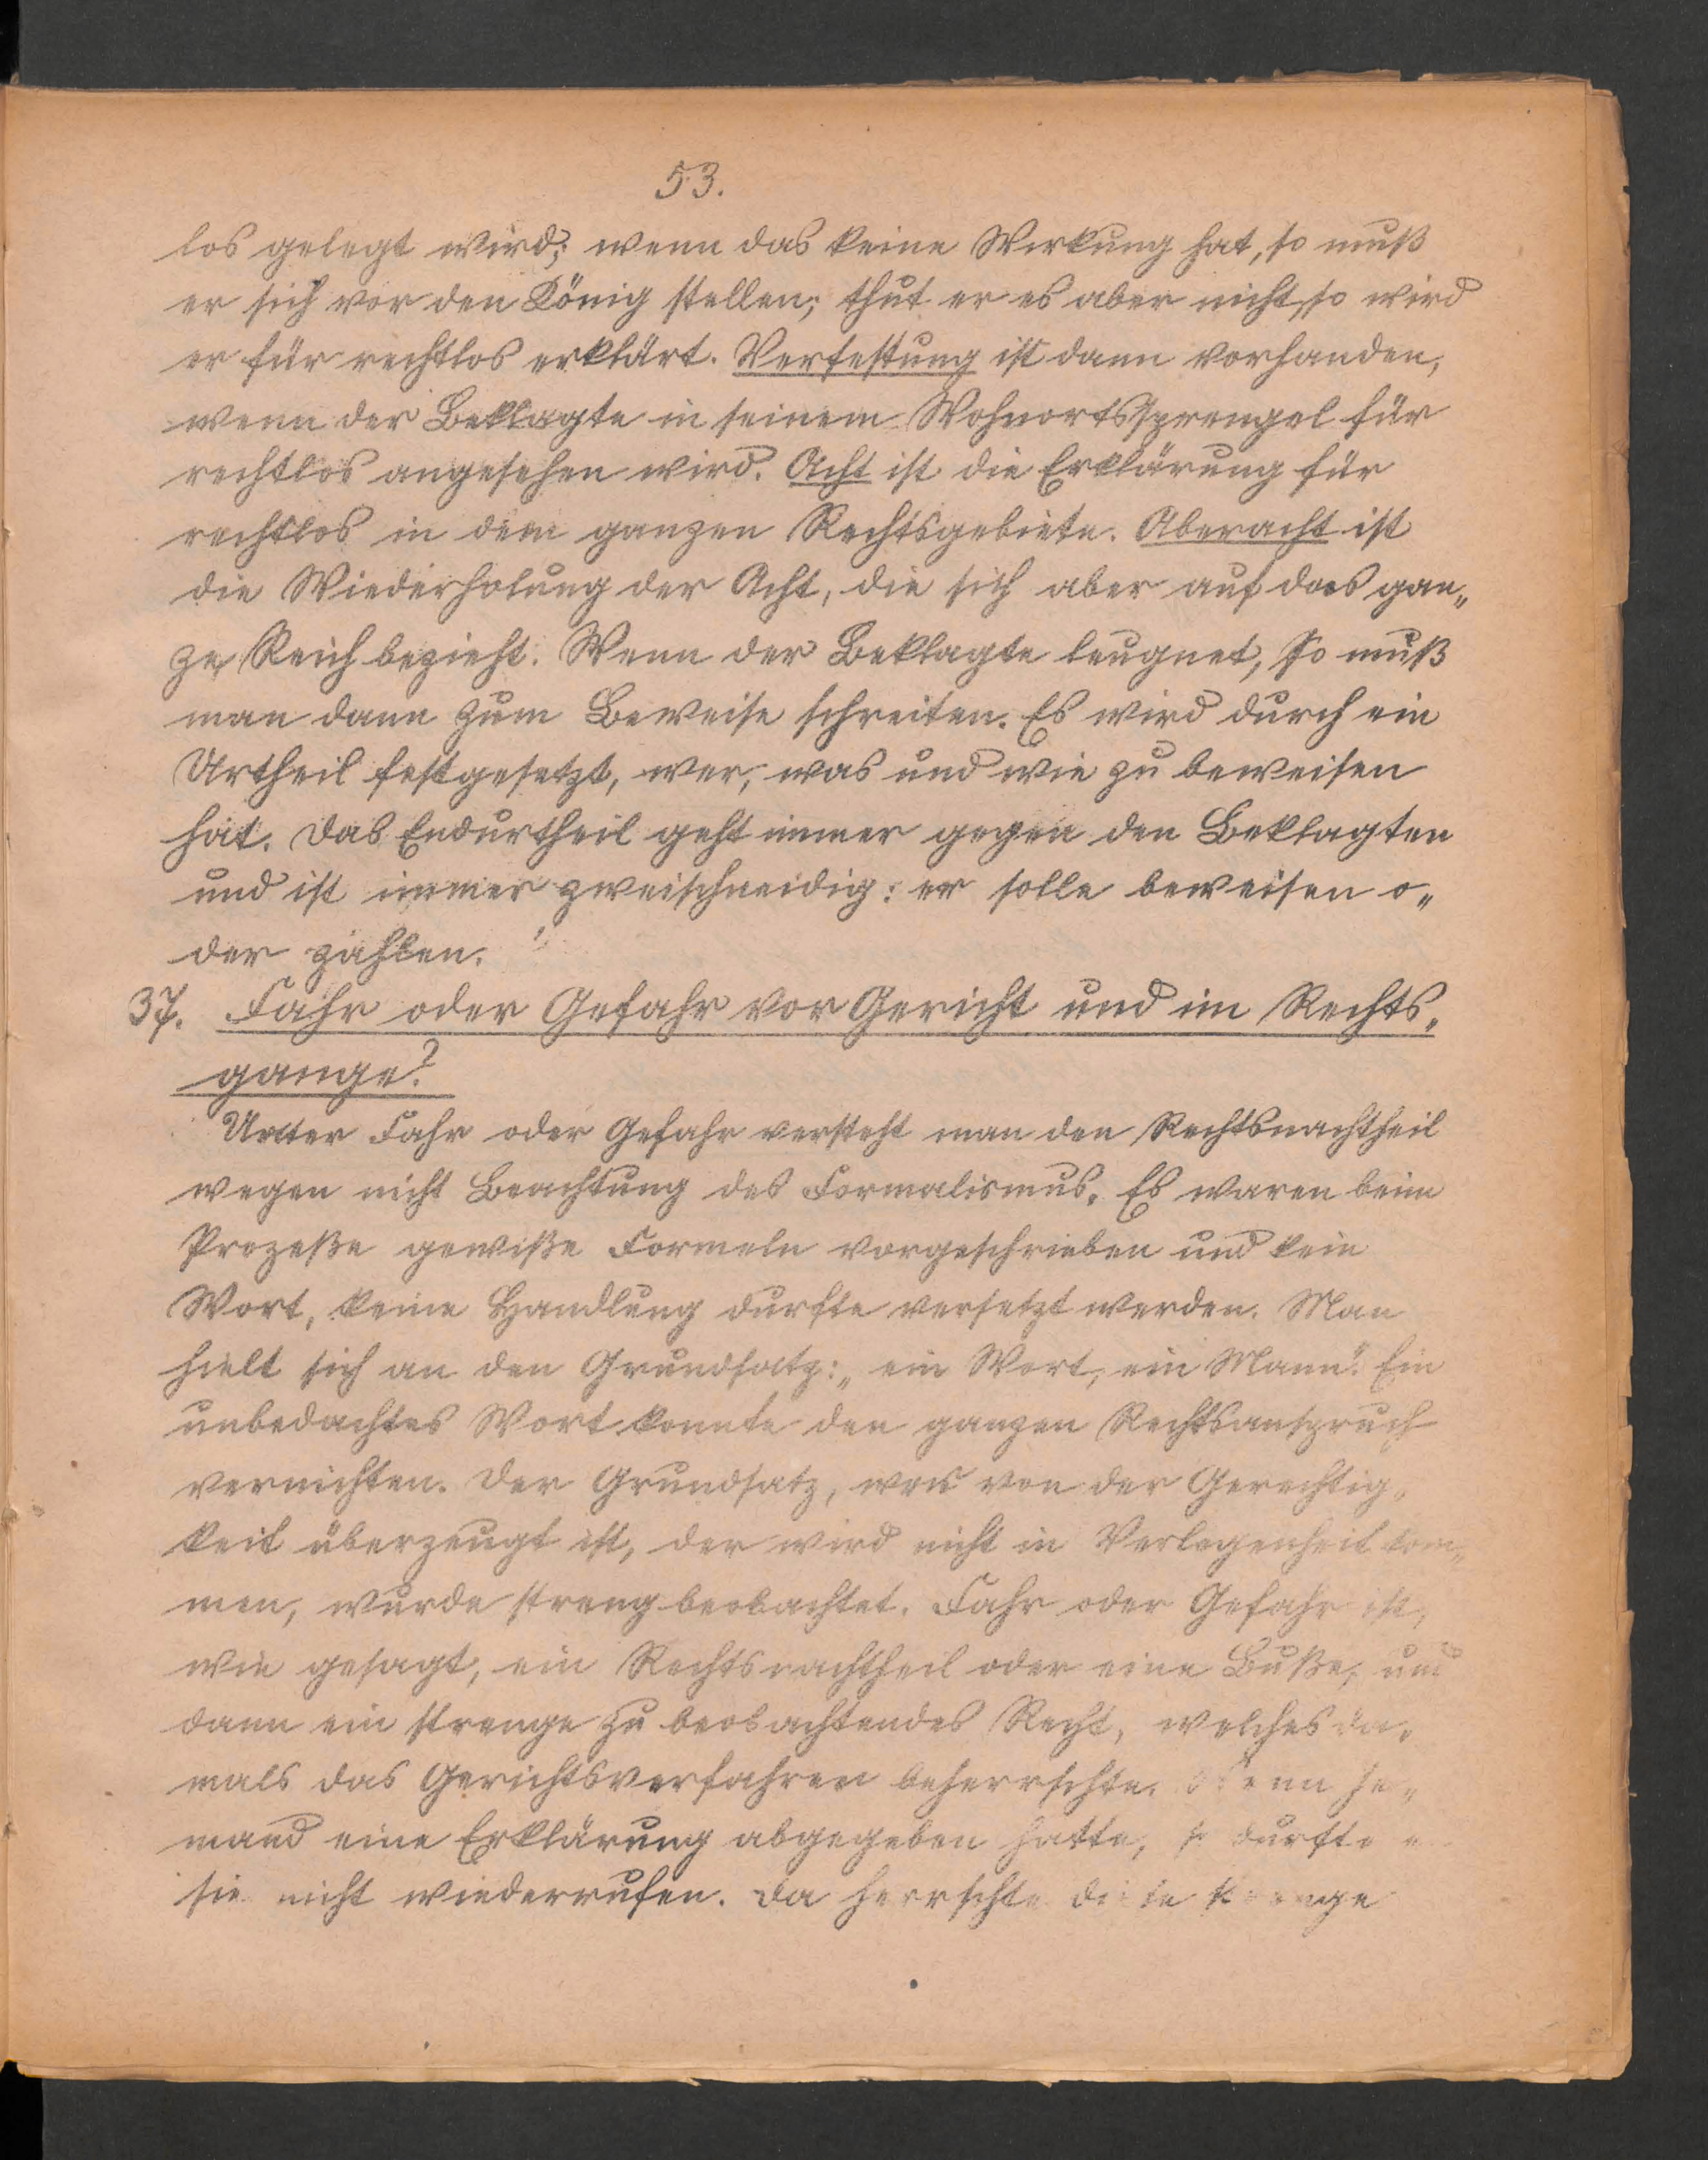 53.
los gelegt wird; wenn das keine Wirkung hat, so muß
er sich vor den König stellen; thut er es aber nicht, so wird
er für rechtlos erklärt. Verfestung ist dann vorhanden,
wenn der Beklagte in seinem Wohnortssprengel für
rechtlos angesehen wird. Acht ist die Erklärung für
rechtlos in dem ganzen Rechtsgebiete. Aberacht ist
die Wiederholung der Acht, die sich aber auf das gan„
ze Reich bezieht. Wenn der Beklagte leugnet, so muß
man dann zum Beweise schreiten. Es wird durch ein
Urtheil festgesetzt, wer, was und wie zu beweisen
hat. Das Endurtheil geht immer gegen den Beklagten
und ist immer zweischneidig: er solle beweisen o„
der zahlen.
37. Fahr oder Gefahr vor Gericht und im Rechts„
gange?
Unter Fahr oder Gefahr versteht man den Rechtsnachtheil
wegen nicht Beachtung des Formalismus. Es waren beim
Prozeße gewiße Formeln vorgeschrieben und kein
Wort, keine Handlung durfte versetzt werden. Man
hielt sich an den Grundsatz: „ein Wort, ein Mann“. Ein
unbedachtes Wort konnte den ganzen Rechtsanspruch
vernichten. Der Grundsatz, wer von der Gerechtig„
keit überzeugt ist, der wird nicht in Verlegenheit kom„
men, wurde streng beobachtet. Fahr oder Gefahr ist,
wie gesagt, ein Rechtsnachtheil oder eine Buße, und
dann ein strenge zu beobachtendes Recht, welches da„
mals das Gerichtsverfahren beherrschte. Wenn je„
mand eine Erklärung abgegeben hatte, so durfte er
sie nicht wiederrufen. Da herrschte diese strenge